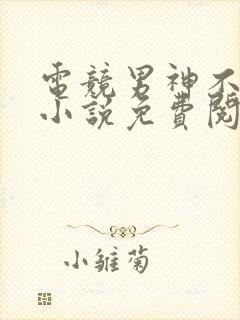 電競男神不
小說免費閱
小雛菊